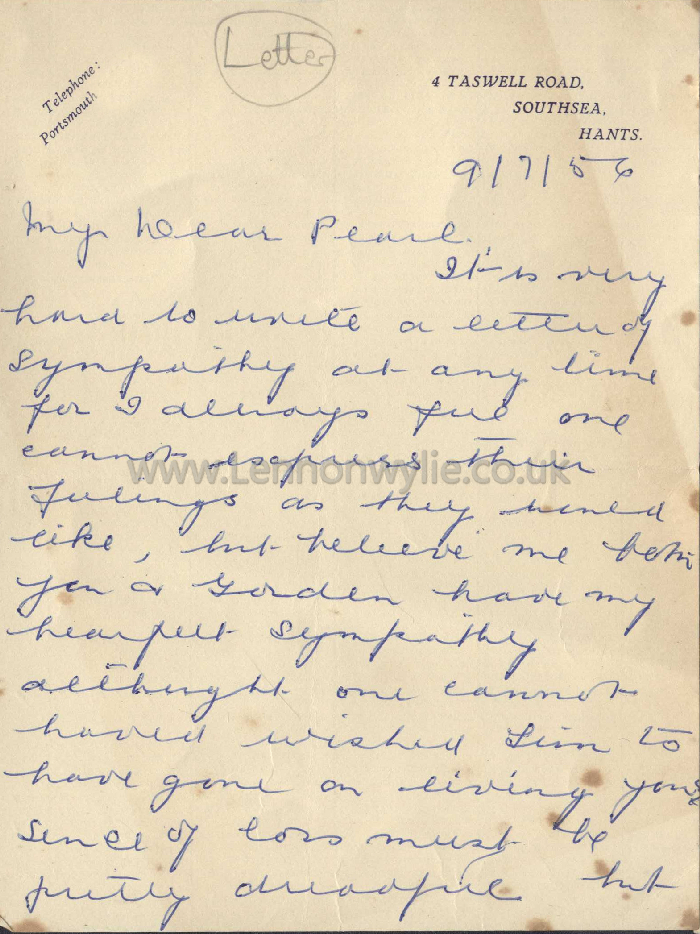 Letter
Telephone:
Portsmouth
4 TASWELL ROAD,
SOUTHSEA,
HANTS.
9/7/56
My Dear Pearl,
It is very
hard to write a letter of
sympathy at any time
for I always feel one
cannot express their
feelings as they would
like, but believe me both
you & Gorden have my
hearfelt sympathy
althought one cannot
haved wished him to
have gone on living your
sence of loss must be
pretty dreadful but
www.Lennonwylie.co.uk